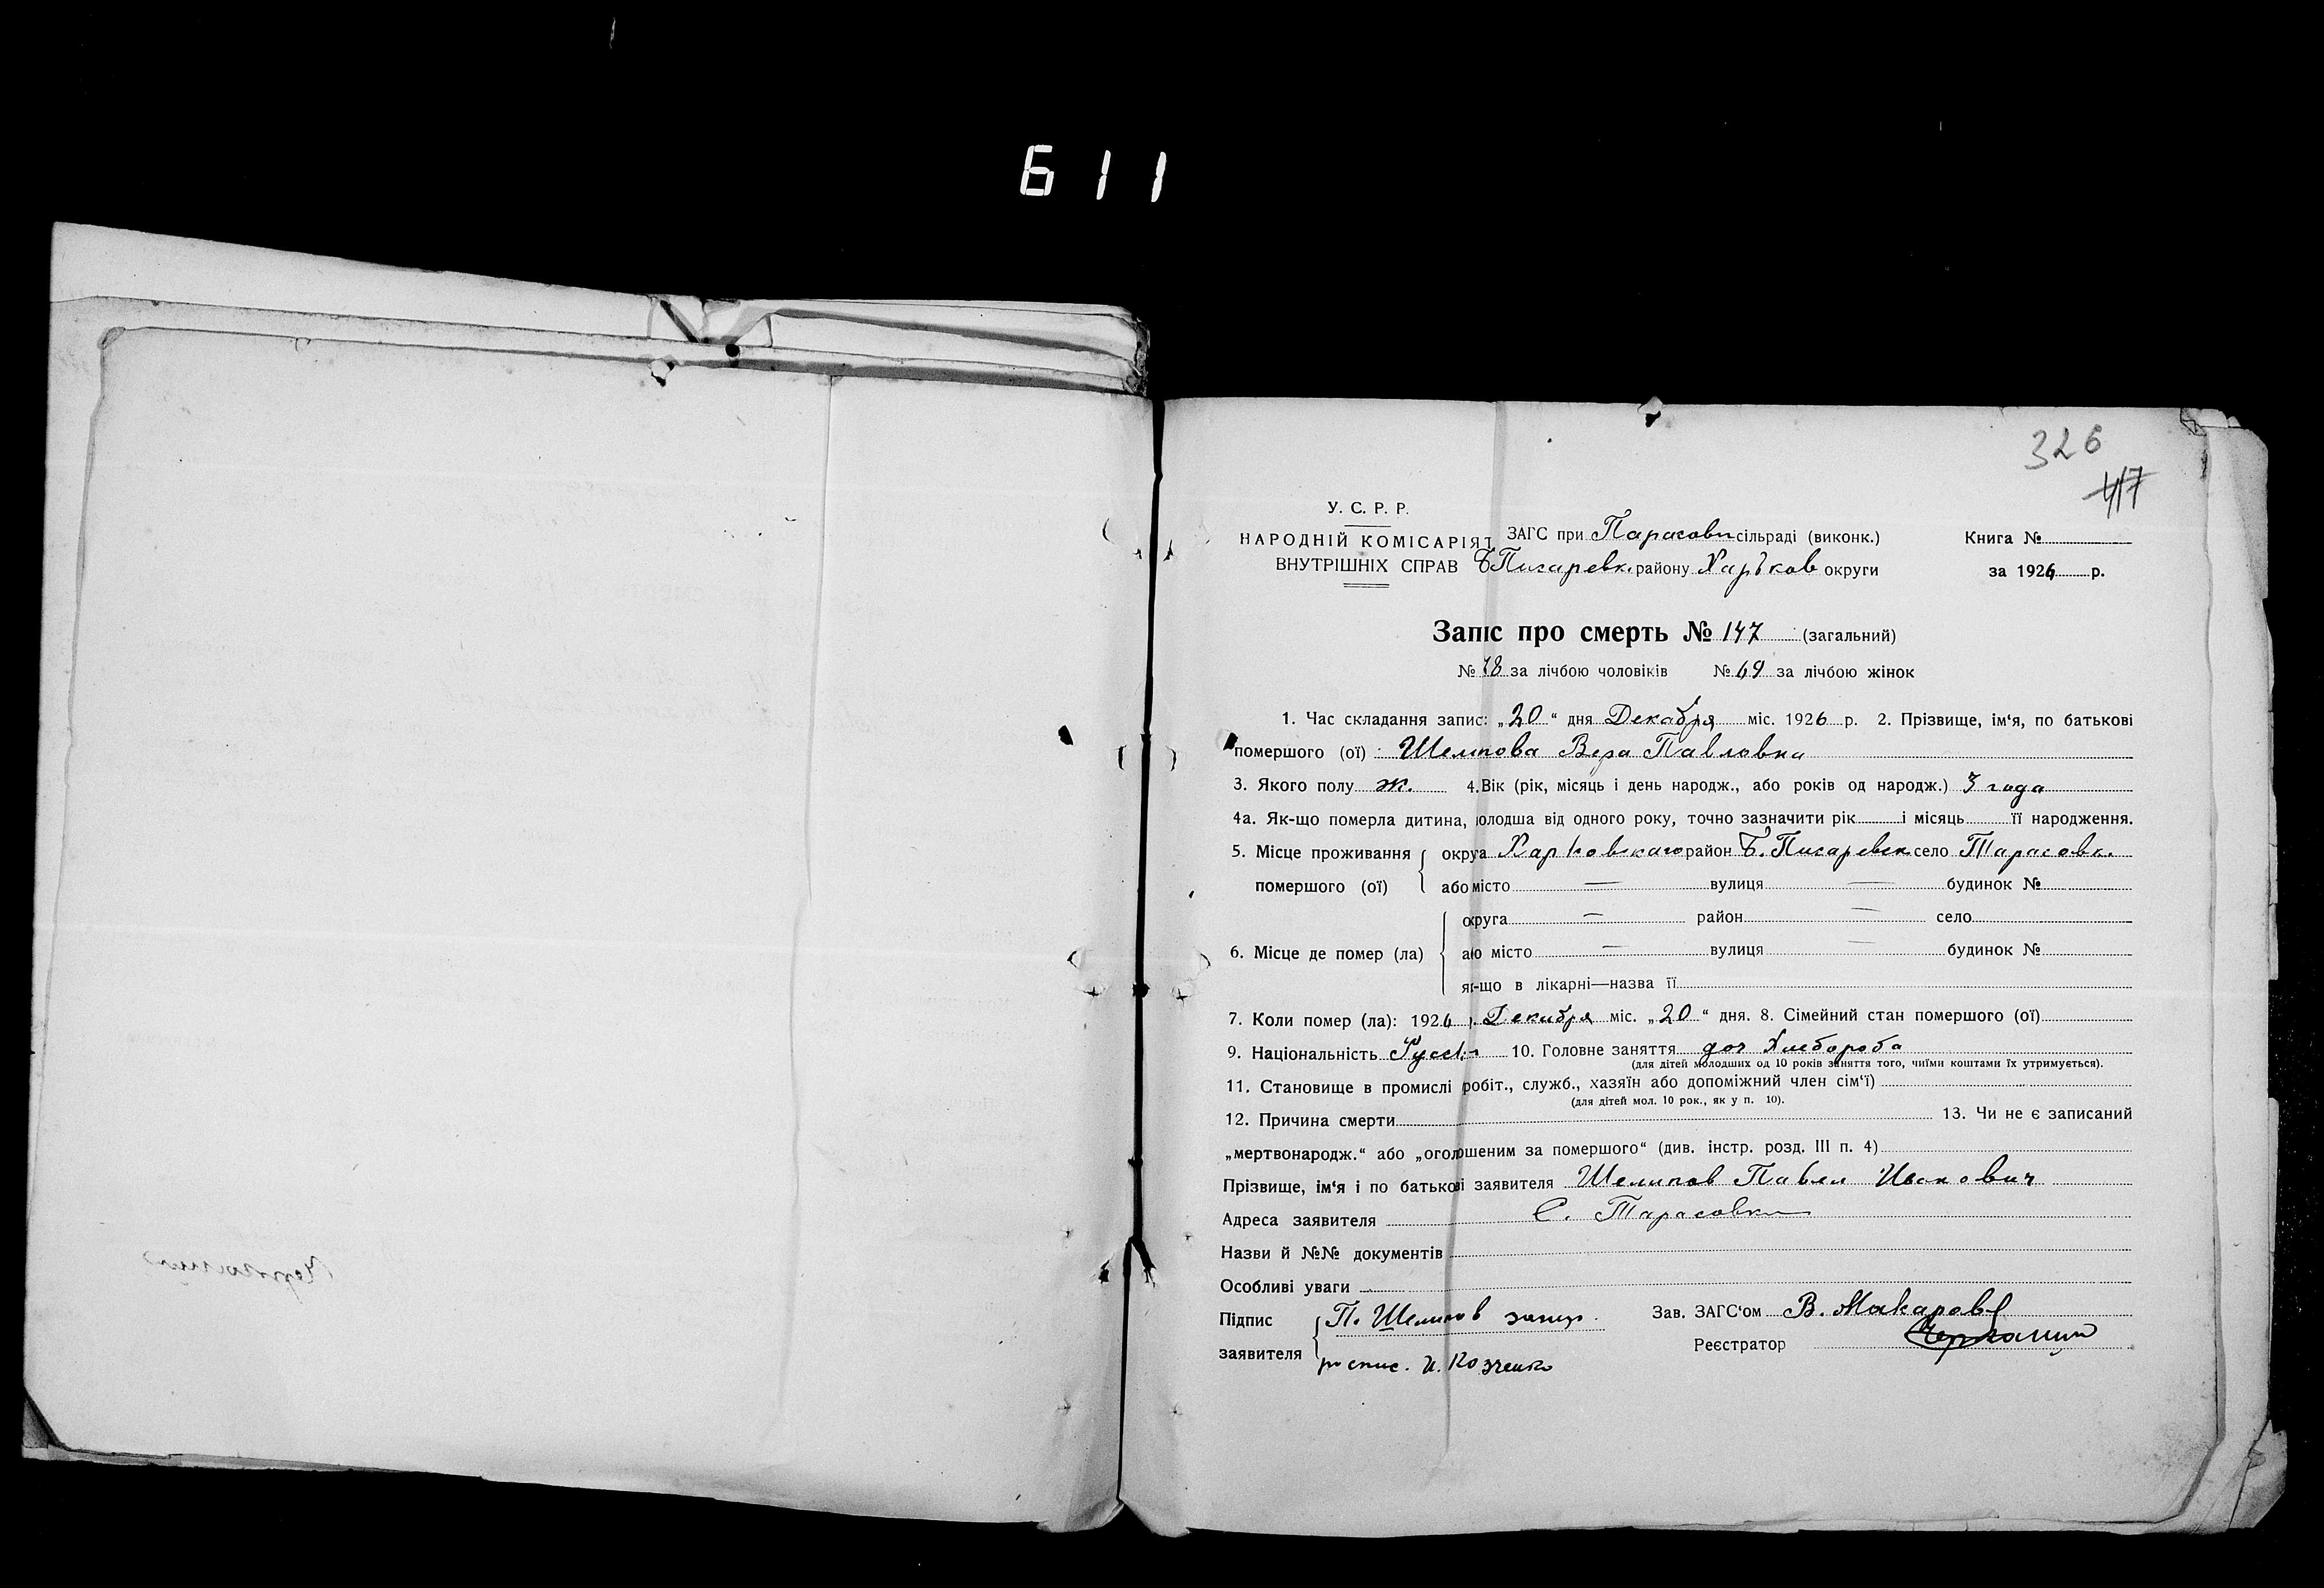 611
326
417
У. С. Р. Р.
НАРОДНІЙ КОМІСАРІЯТ
ВНУТРІШНІХ СПРАВ
ЗАГС при Тарасови сільраді (виконк.)
Б Писаревк. району Харьков округи
Книга №
за 1926 р.
Запис про смерть № 147 (загальний)
№ 78 за лічбою чоловіків № 69 за лічбою жінок
1. Час складання запис: „20“ дня Декабря міс. 1926 р. 2. Прізвище, ім‘я, по батькові
помершого (ої) : Шелипова Вера Павловна
3. Якого полу ж. 4. Вік (рік, місяць і день народж., або років од народж.) 3 года
4а. Як-що померла дитина, молодша від одного року, точно зазначити рік і місяць її народження.
5. Місце проживання помершого (ої)
округа Харковскаго район Б. Писаревск село Тарасовк.
або місто — вулиця — будинок №
6. Місце де помер (ла)
округа — район — село
або місто — вулиця — будинок №
як-що в лікарні—назва її
7. Коли помер (ла): 1926 р. Декабря міс. „20“ дня. 8. Сімейний стан помершого (ої)
9. Національність 10. Головне заняття доч Хлебороба
(для дітей молодших од 10 років заняття того, чиїми коштами їх утримується).
11. Становище в промислі робіт., служб., хазяїн або допоміжний член сім‘ї)
(для дітей мол. 10 рок., як у п. 10).
12. Причина смерти 13. Чи не є записаний
„мертвонародж.“ або „оголошеним за помершого“ (див. інстр. розд. III п. 4)
Прізвище, ім‘я і по батькові заявителя Шелипов Павел Иванович
Адреса заявителя С. Тарасовка
Назви й №№ документів
Особливі уваги
Підпис заявителя
П. Шелипов
роспис. И. Козченко
Зав. ЗАГС‘ом В. Макаров
Реєстратор